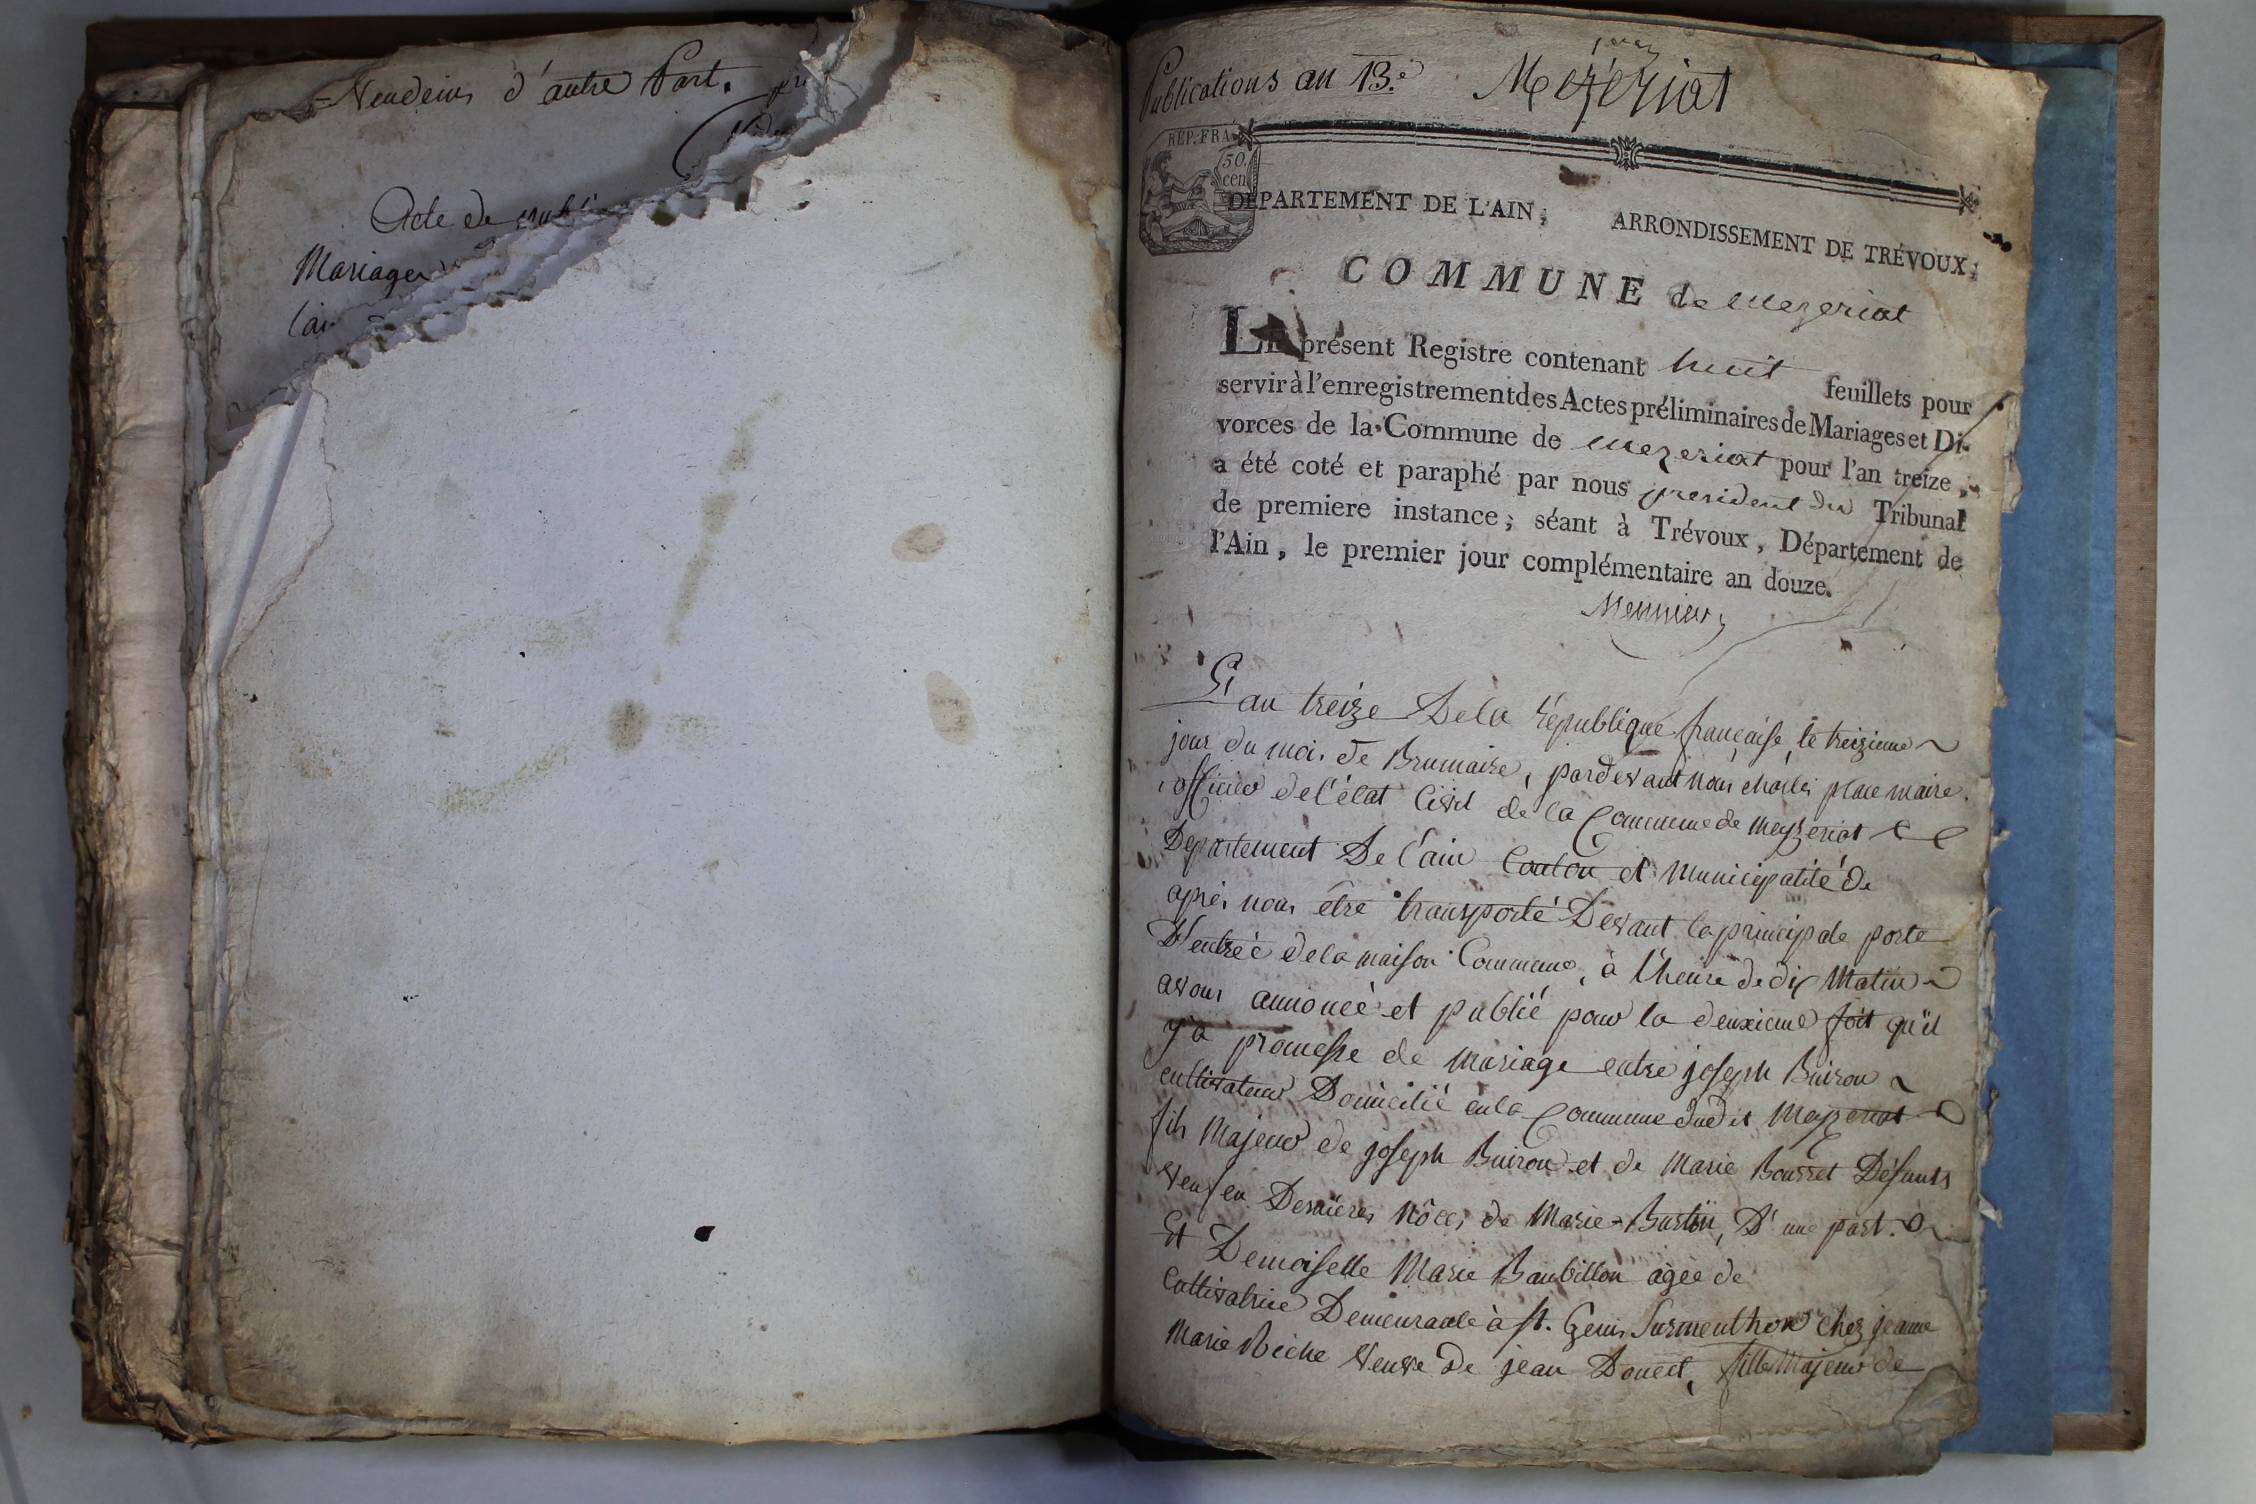 Vendeins d'autre Part.
Acte de
Mariage
Publications an 13.e Mezeriat
REP. FRA
50.
cen
DÉPARTEMENT DE L'AIN; ARRONDISSEMENT DE TRÉVOUX;
COMMUNE de Mezeriat
LE présent Registre contenant huit feuillets pour
servir à l'enregistrement des Actes préliminaires de Mariages et Di-
vorces de la Commune de Mezeriat pour l'an treize,
a été coté et paraphé par nous president du Tribunal
de premiere instance, séant à Trévoux, Département de
l'Ain, le premier jour complémentaire an douze.
L'an treize De la République française, le treizieme
jour du mois de Brumaire, pardevant nous charles place maire
officier de l'état Civil de la Commune de Meyzeriat
Departement De l'ain Canton et Municipalité de
après nous être transporté Devant la principale porte
D'entrée de la maison Commune, à l'heure de dix Matin
avons annoncé et publié pour la deuxieme fois qu'il
y a promesse de mariage entre joseph Buiron
cultivateur Domicilié en la Commune dudit Mezeriat
fils Majeur de joseph Buiron et de Marie Bourret Défunts
veuf en Dernieres Nôces de Marie Burtin, D'une part.
Et Demoiselle Marie Baubillon agée de
Cultivatrice Demeurante à st. Genis Surmenthon chez jeanne
Marie Biche Veuve De jean Doucet, fille Majeur de